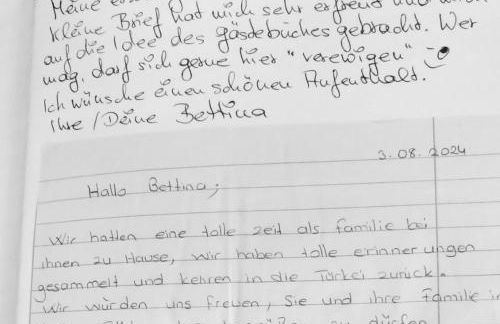 Meine
kleine Brief hat mich sehr erfreut und
auf die Idee des gästebuches gebracht. Wer
mag, darf sich gerne hier "verewigen"
Ich wünsche einen schönen Aufenthalt.
Ihre / Deine Bettina
3.08.2024
Hallo Bettina,
Wir hatten eine tolle zeit als familie bei
ihnen zu Hause, wir haben tolle erinnerungen
gesammelt und kehren in die Türkei zurück.
Wir würden uns freuen, Sie und ihre Familie in
zu dürfen